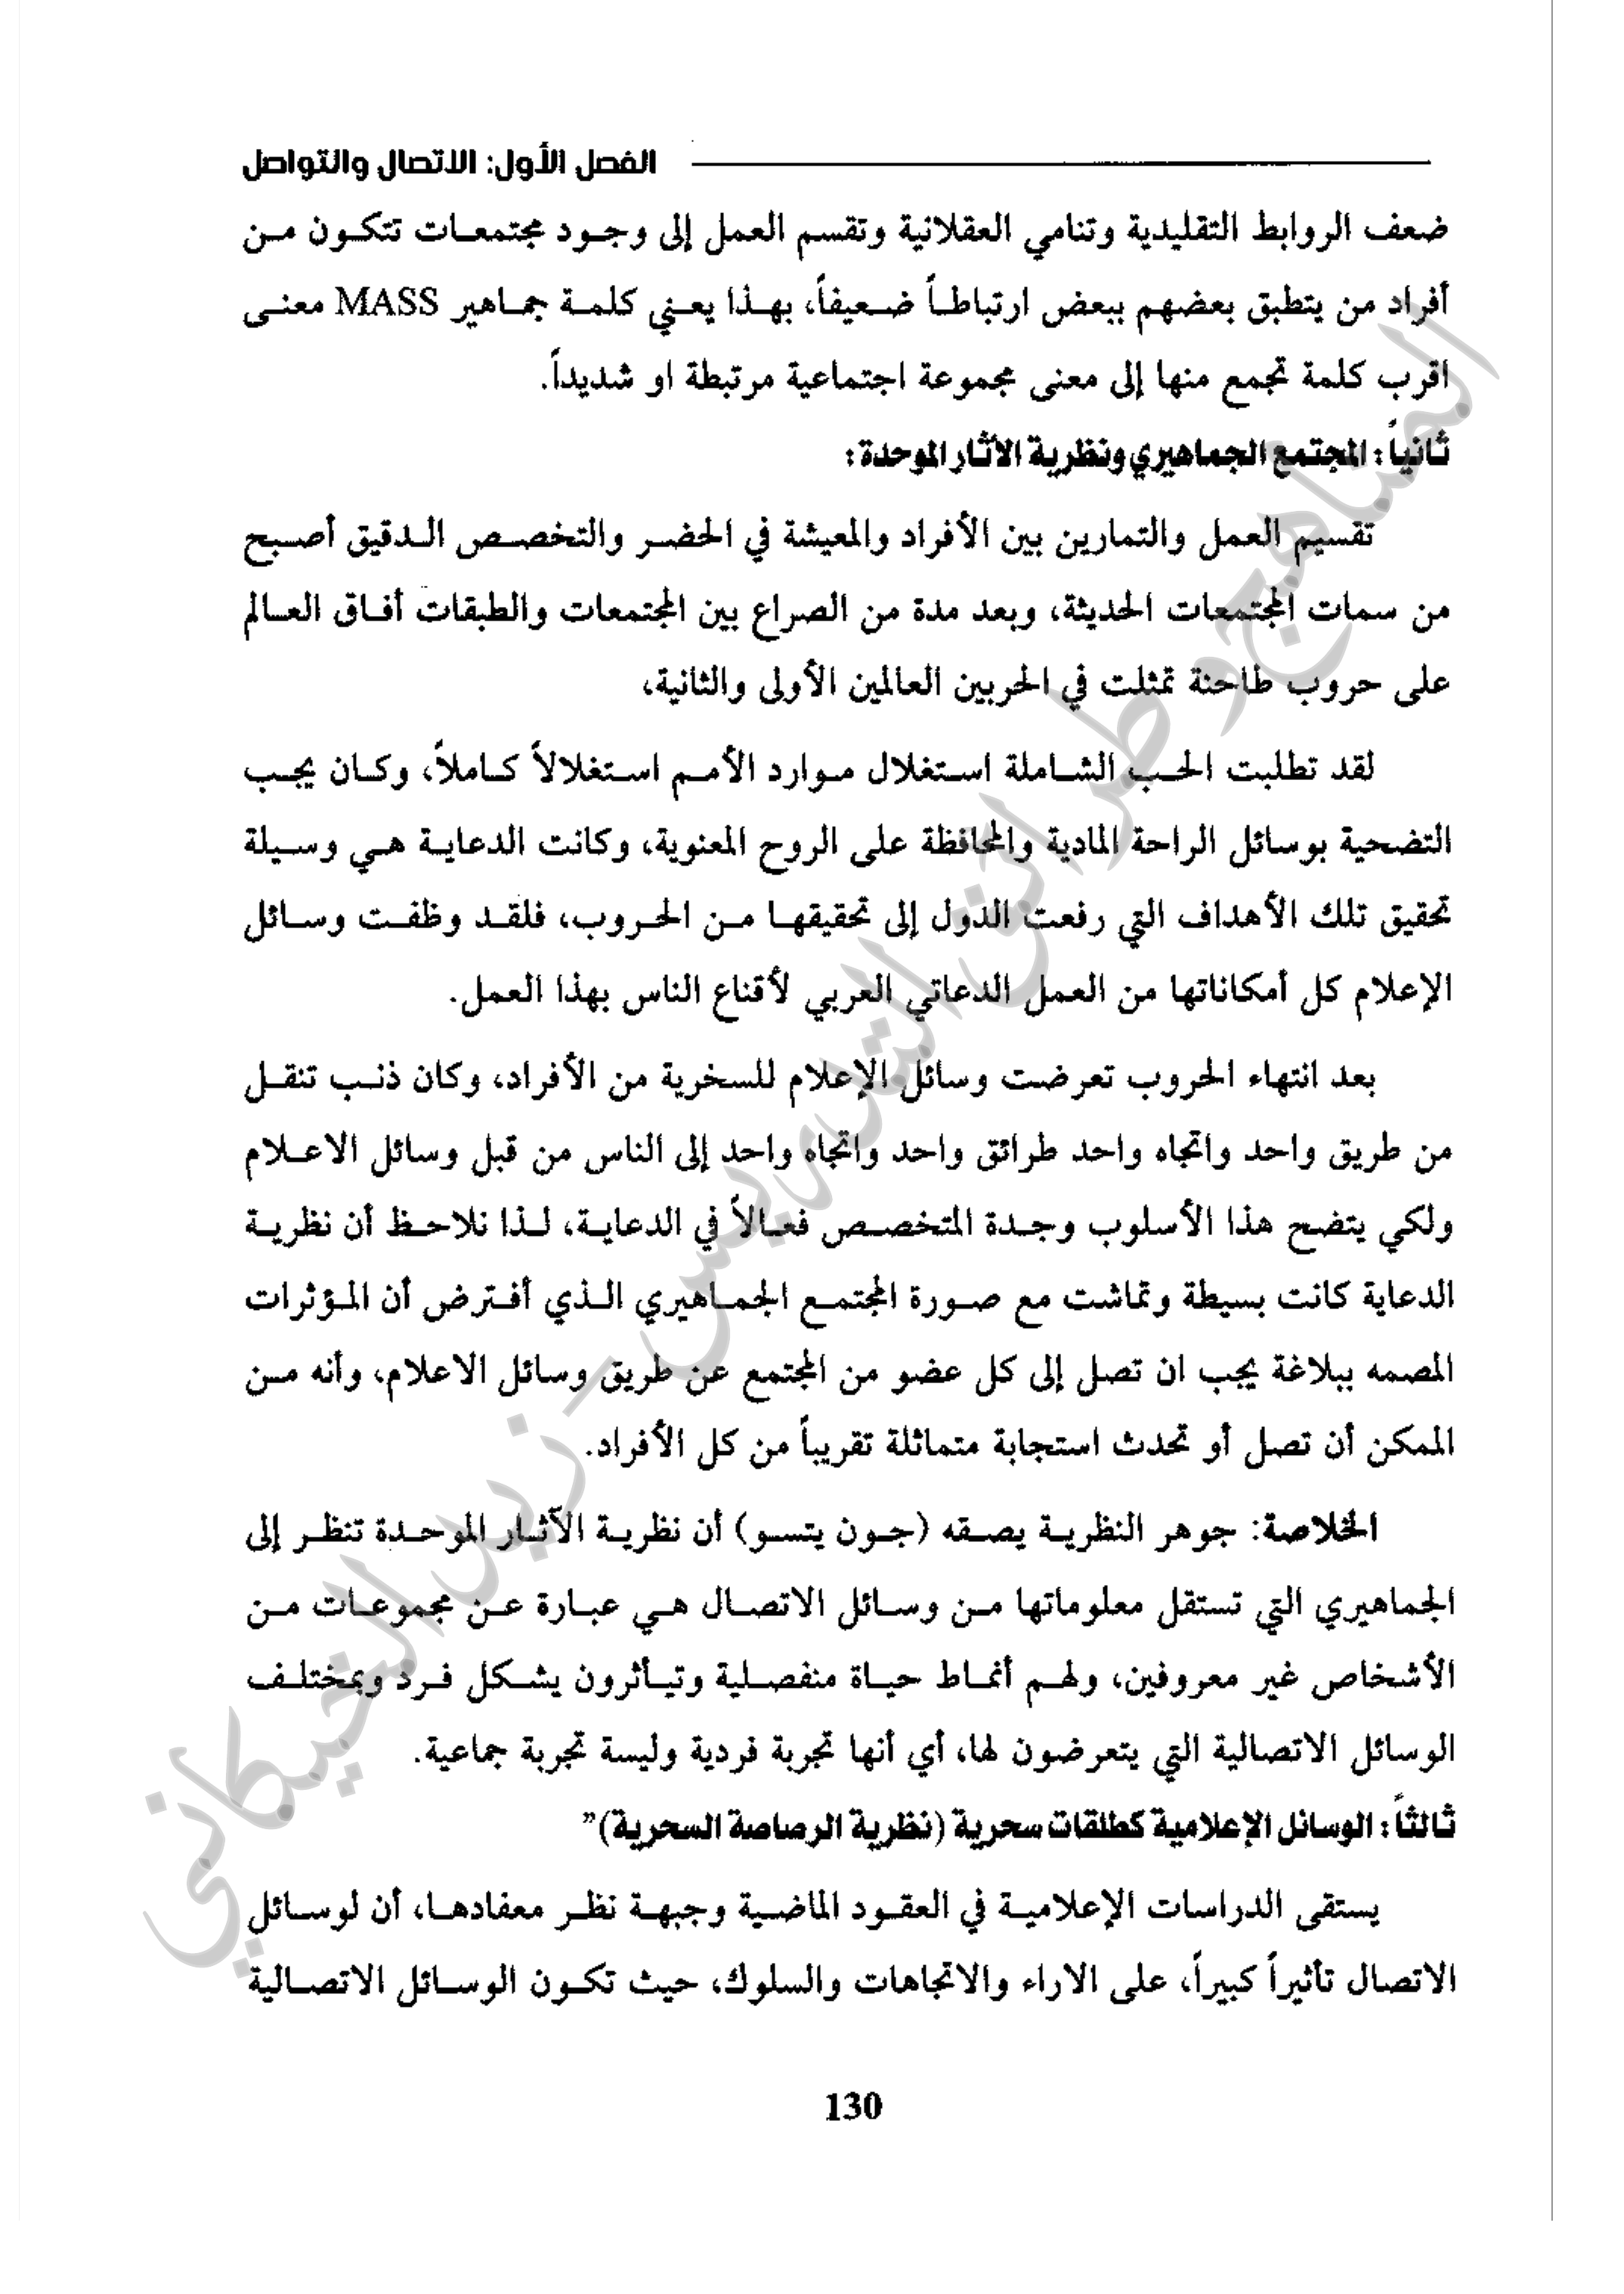 الفصل الأول: الاتصال والتواصل
ضعف الروابط التقليدية وتنامي العقلانية وتقسم العمل إلى وجود مجتمعات تتكون من
أفراد من يتطبق بعضهم ببعض ارتباطاً ضعيفاً، بهذا يعني كلمة جماهير MASS معنى
اقرب كلمة تجمع منها إلى معنى مجموعة اجتماعية مرتبطة او شديداً.
ثانياً: المجتمع الجماهيري ونظرية الاثار الموحدة:
تقسيم العمل والتمارين بين الأفراد والمعيشة في الحضر والتخصص الدقيق أصبح
من سمات المجتمعات الحديثة، وبعد مدة من الصراع بين المجتمعات والطبقات أفاق العالم
على حروب طاحنة تمثلت في الحربين العالمين الأولى والثانية،
لقد تطلبت الحب الشاملة استغلال موارد الأمم استغلالاً كاملاً، وكان يجب
التضحية بوسائل الراحة المادية والمحافظة على الروح المعنوية، وكانت الدعاية هي وسيلة
تحقيق تلك الأهداف التي رفعت الدول إلى تحقيقها من الحروب، فلقد وظفت وسائل
الإعلام كل أمكاناتها من العمل الدعاتي العربي لأقناع الناس بهذا العمل.
بعد انتهاء الحروب تعرضت وسائل الإعلام للسخرية من الأفراد، وكان ذنب تنقل
من طريق واحد واتجاه واحد طرائق واحد واتجاه واحد إلى الناس من قبل وسائل الاعلام
ولكي يتضح هذا الأسلوب وجدة المتخصص فعالاً في الدعاية، لذا نلاحظ أن نظرية
الدعاية كانت بسيطة وتماشت مع صورة المجتمع الجماهيري الذي أفترض أن المؤثرات
المصمه ببلاغة يجب ان تصل إلى كل عضو من المجتمع عن طريق وسائل الاعلام، وأنه من
الممكن أن تصل أو تحدث استجابة متماثلة تقريباً من كل الأفراد.
الخلاصة: جوهر النظرية يصقه (جون يتسو) أن نظرية الآثار الموحدة تنظر إلى
الجماهيري التي تستقل معلوماتها من وسائل الاتصال هي عبارة عن مجموعات من
الأشخاص غير معروفين، ولهم أنماط حياة منفصلية وتيأثرون يشكل فرد وبمختلف
الوسائل الاتصالية التي يتعرضون لها، أي أنها تجربة فردية وليسة تجربة جماعية.
ثالثاً: الوسائل الإعلامية كطلقات سحرية (نظرية الرصاصة السحرية)"
يستقى الدراسات الإعلامية في العقود الماضية وجبهة نظر معفادها، أن لوسائل
الاتصال تأثيراً كبيراً، على الاراء والاتجاهات والسلوك، حيث تكون الوسائل الاتصالية
130
المناهج وطرائق التدريس - زيد الخيكاني